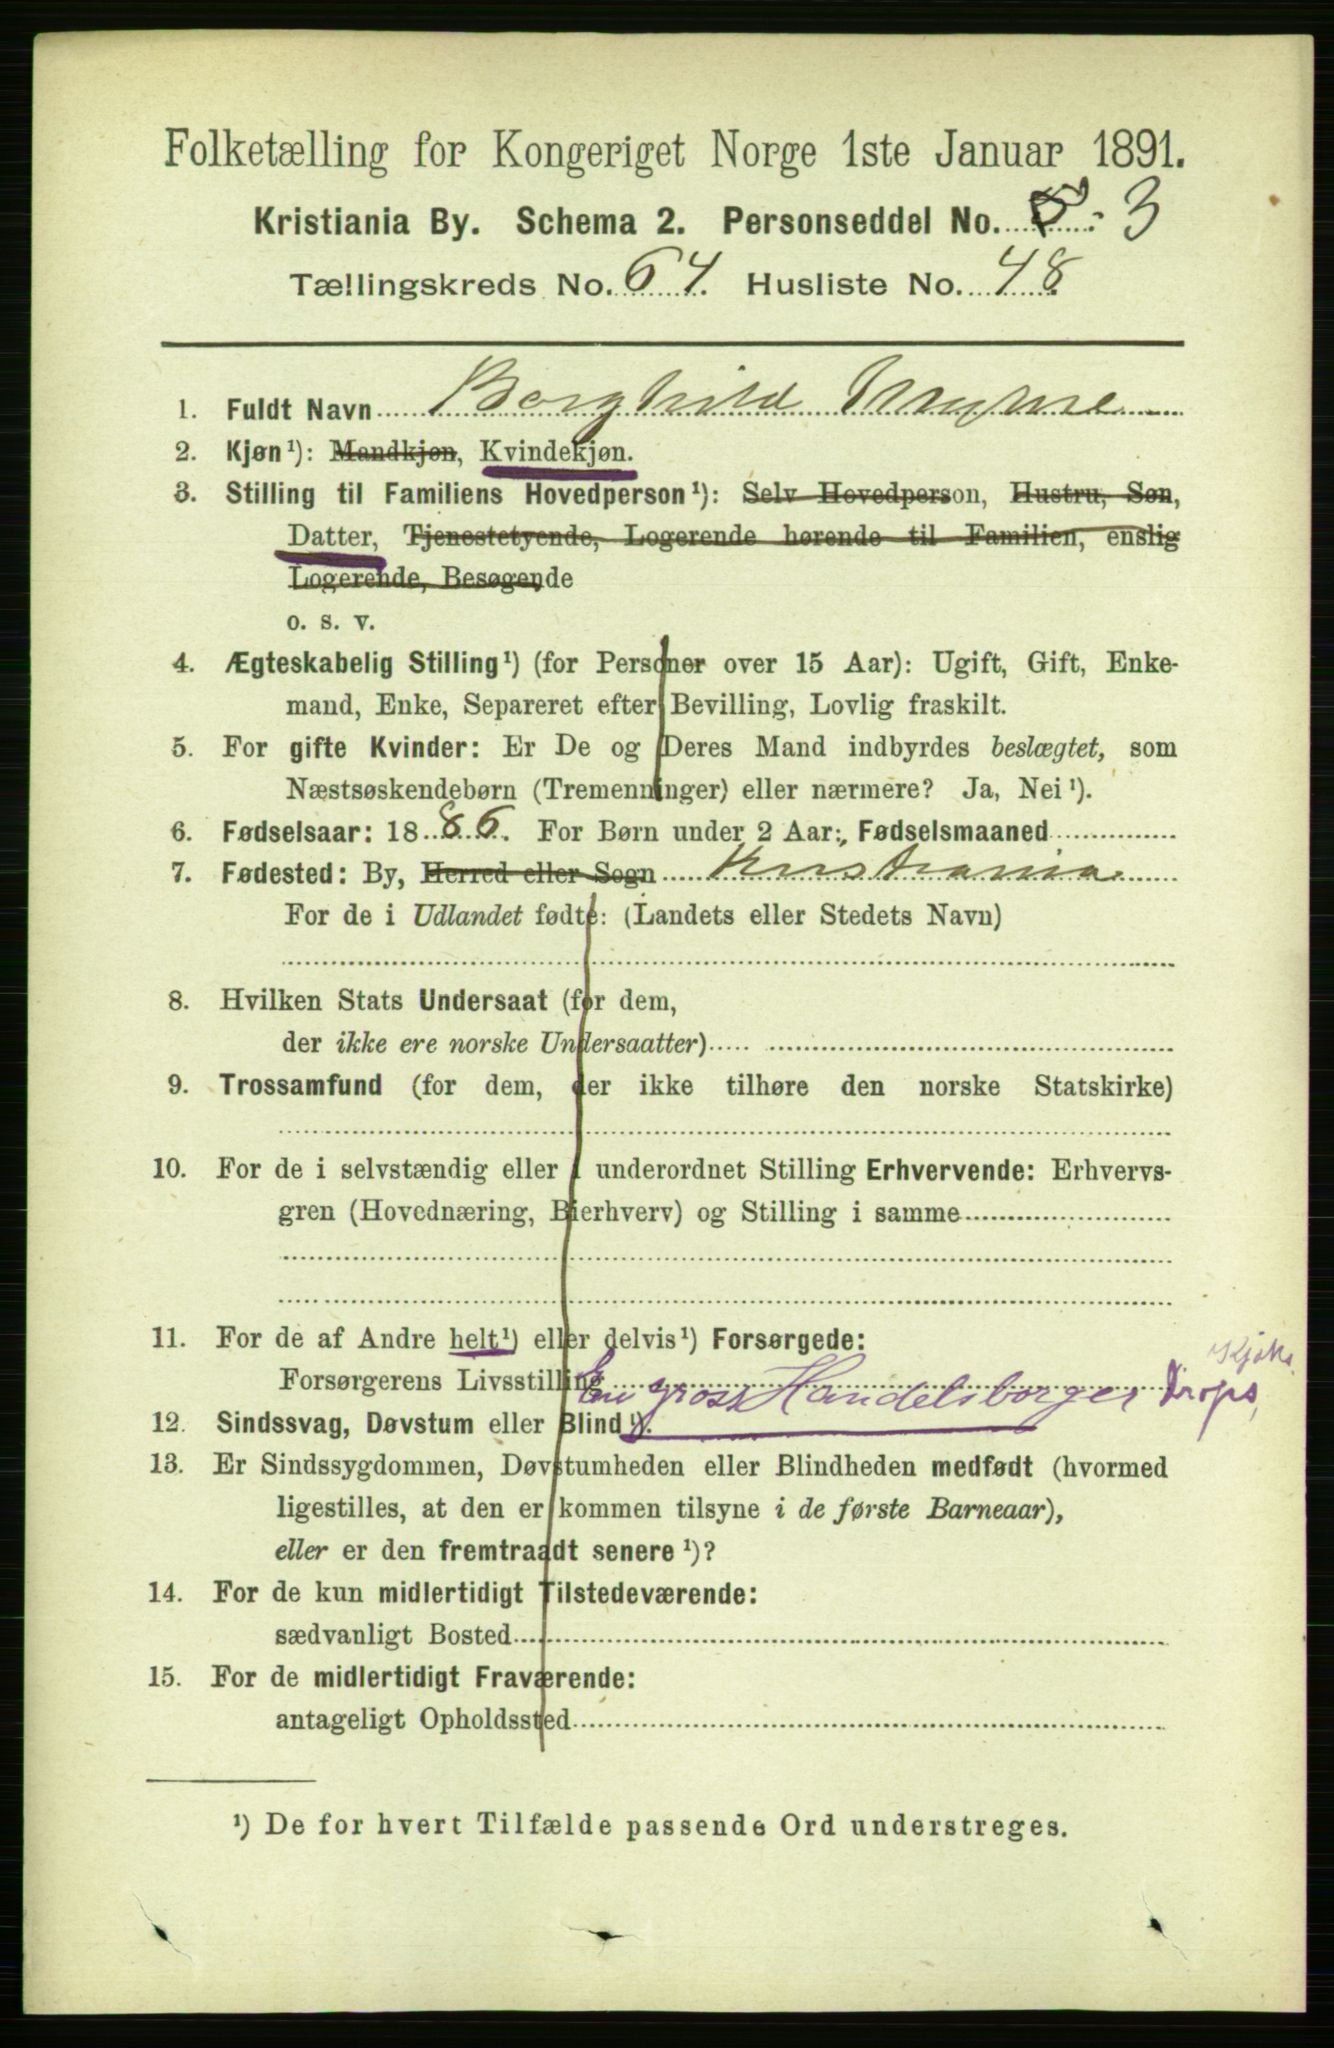 Folketælling for Kongeriget Norge 1ste Januar 1891.
Kristiania By. Schema 2. Personseddel No. 3
Tællingskreds No. 64. Husliste No. 48
1. Fuldt Navn Borghild Myhre
2. Kjøn¹): Mandkjøn, Kvindekjøn.
3. Stilling til Familiens Hovedperson¹): Selv Hovedperson, Hustru, Søn,
Datter, Tjenestetyende, Logerende hørende til Familien, enslig
Logerende, Besøgende
o. s. v.
4. Ægteskabelig Stilling¹) (for Personer over 15 Aar): Ugift, Gift, Enke-
mand, Enke, Separeret efter Bevilling, Lovlig fraskilt.
5. For gifte Kvinder: Er De og Deres Mand indbyrdes beslægtet, som
Næstsøskendebørn (Tremenninger) eller nærmere? Ja, Nei¹).
6. Fødselsaar: 1886. For Børn under 2 Aar: Fødselsmaaned
7. Fødested: By, Herred eller Sogn Kristiania
For de i Udlandet fødte: (Landets eller Stedets Navn)
8. Hvilken Stats Undersaat (for dem,
der ikke ere norske Undersaatter)
9. Trossamfund (for dem, der ikke tilhøre den norske Statskirke)
10. For de i selvstændig eller i underordnet Stilling Erhvervende: Erhvervs-
gren (Hovednæring, Bierhverv) og Stilling i samme
11. For de af Andre helt¹) eller delvis¹) Forsørgede:
Forsørgerens Livsstilling En gross Handelsborger
12. Sindssvag, Døvstum eller Blind¹).
13. Er Sindssygdommen, Døvstumheden eller Blindheden medfødt (hvormed
ligestilles, at den er kommen tilsyne i de første Barneaar),
eller er den fremtraadt senere¹)?
14. For de kun midlertidigt Tilstedeværende:
sædvanligt Bosted
15. For de midlertidigt Fraværende:
antageligt Opholdssted
¹) De for hvert Tilfælde passende Ord understreges.